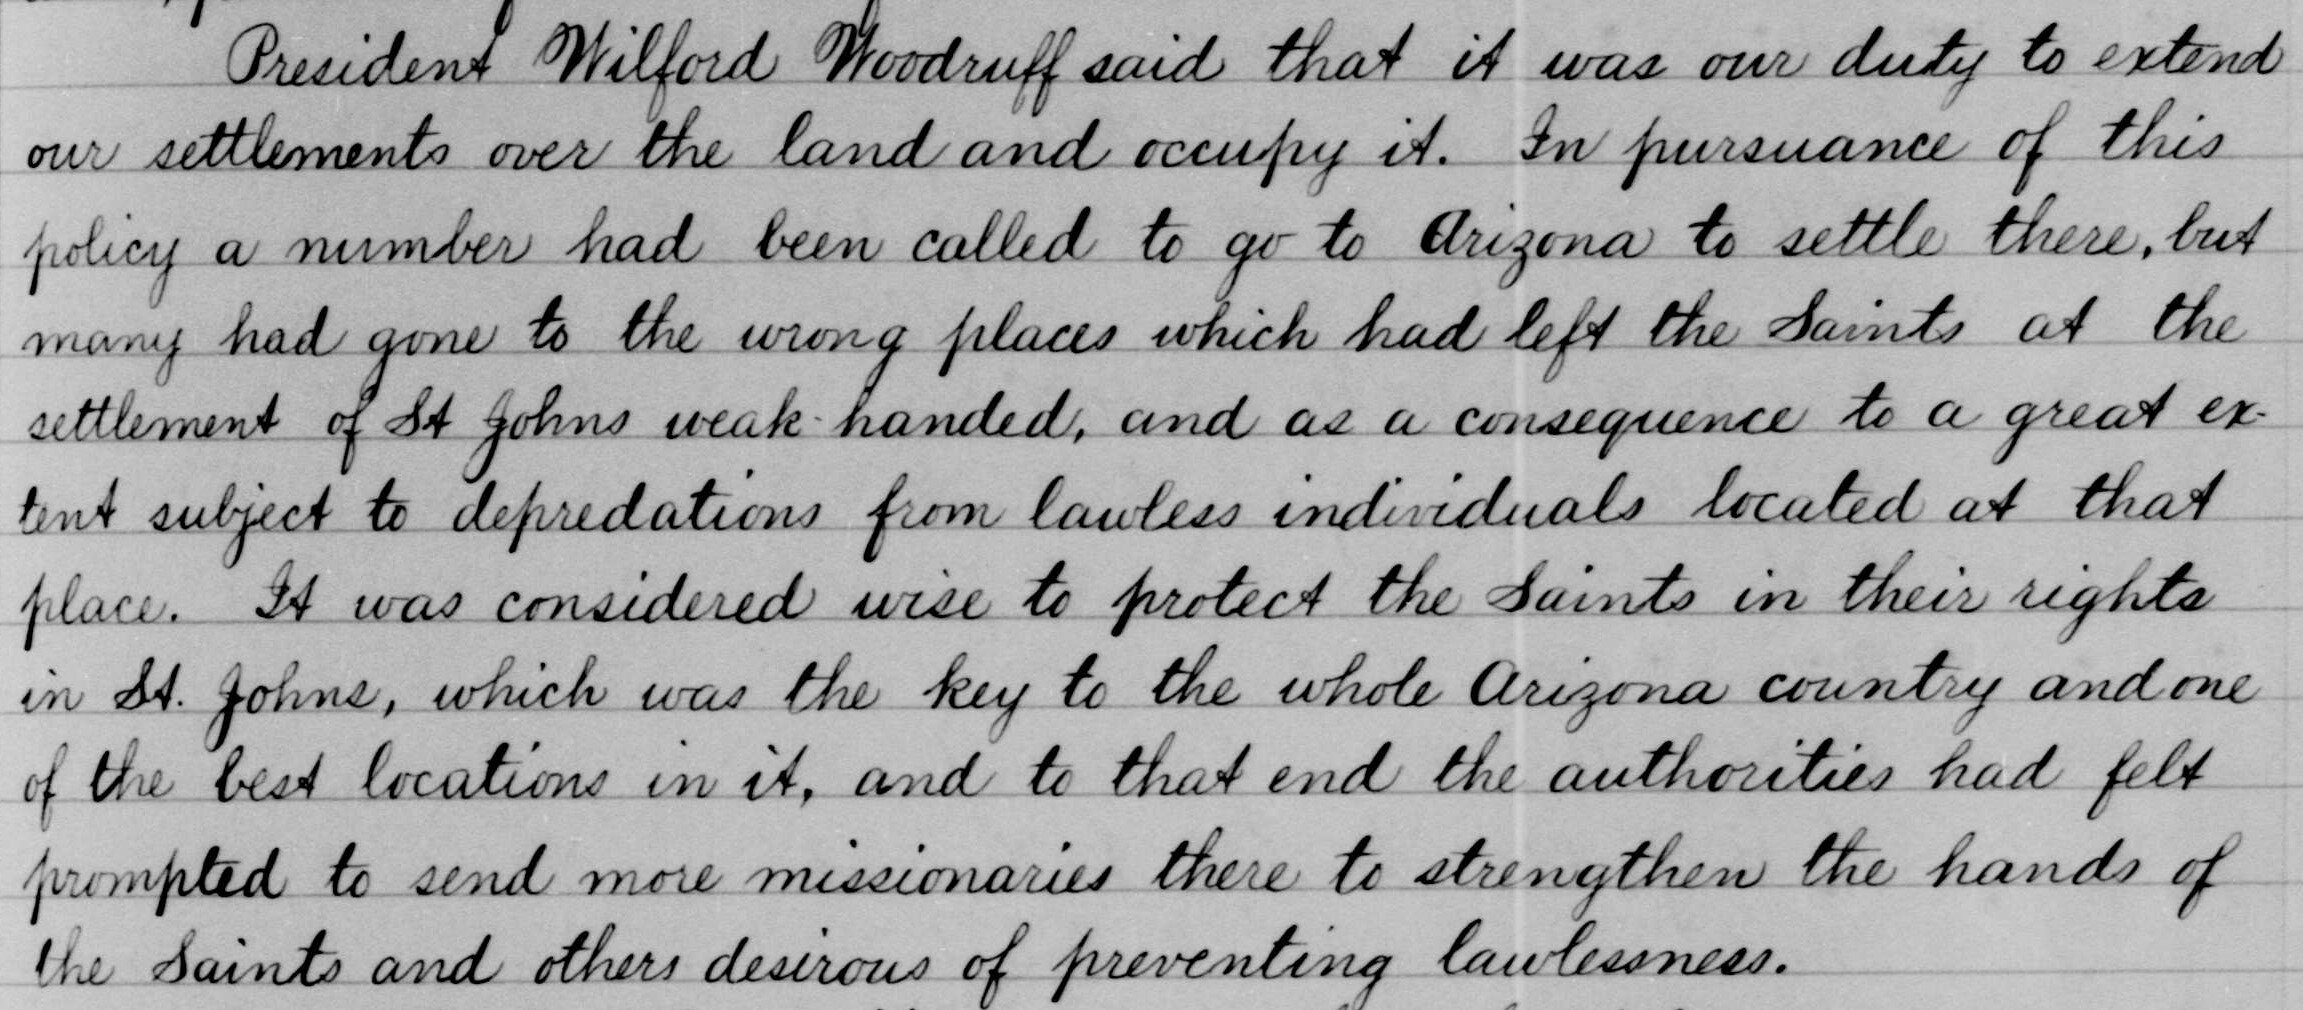 President Wilford Woodruff said that it was our duty to extend
our settlements over the land and occupy it. In pursuance of this
policy a number had been called to go to Arizona to settle there, but
many had gone to the wrong places which had left the Saints at the
settlement of St Johns weak-handed, and as a consequence to a great ex-
tent subject to depredations from lawless individuals located at that
place. It was considered wise to protect the Saints in their rights
in St. Johns, which was the key to the whole Arizona country and one
of the best locations in it, and to that end the authorities had felt
prompted to send more missionaries there to strengthen the hands of
the Saints and others desirous of preventing lawlessness.